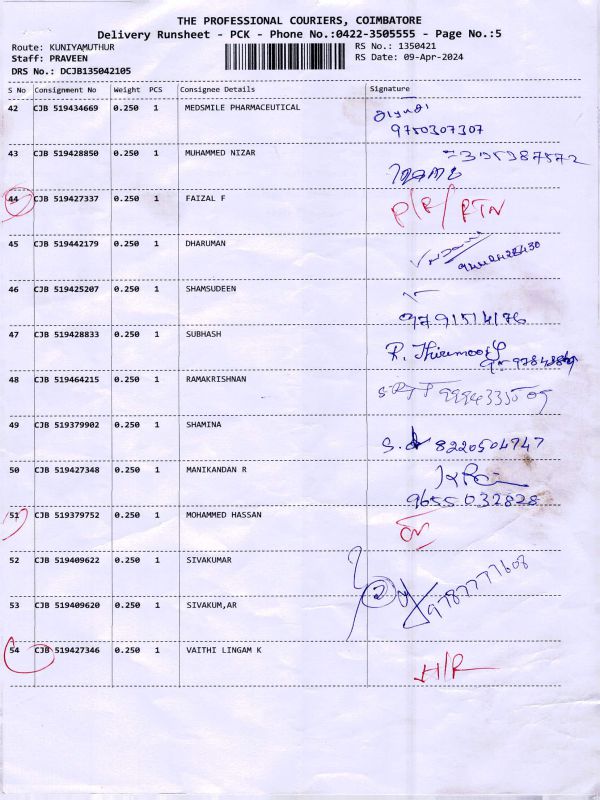 THE PROFESSIONAL COURIERS, COIMBATORE
Delivery Runsheet - PCK - Phone No.:0422-3505555 - Page No.:5
Route: KUNIYAMUTHUR
Staff: PRAVEEN
DRS No.: DCJB135042105
RS No.: 1350421
RS Date: 09-Apr-2024
S No Consignment No Weight PCS Consignee Details Signature
42 CJB 519434669 0.250 1 MEDSMILE PHARMACEUTICAL
9750307307
43 CJB 519428850 0.250 1 MUHAMMED NIZAR
44 CJB 519427337 0.250 1 FAIZAL F P/R/RTN
45 CJB 519442179 0.250 1 DHARUMAN
46 CJB 519425207 0.250 1 SHAMSUDEEN
9791514176
47 CJB 519428833 0.250 1 SUBHASH
48 CJB 519464215 0.250 1 RAMAKRISHNAN
49 CJB 519379902 0.250 1 SHAMINA 8220504747
50 CJB 519427348 0.250 1 MANIKANDAN R
9655 032828
51 CJB 519379752 0.250 1 MOHAMMED HASSAN
52 CJB 519409622 0.250 1 SIVAKUMAR
9787777608
53 CJB 519409620 0.250 1 SIVAKUM,AR
54 CJB 519427346 0.250 1 VAITHI LINGAM K
H/R